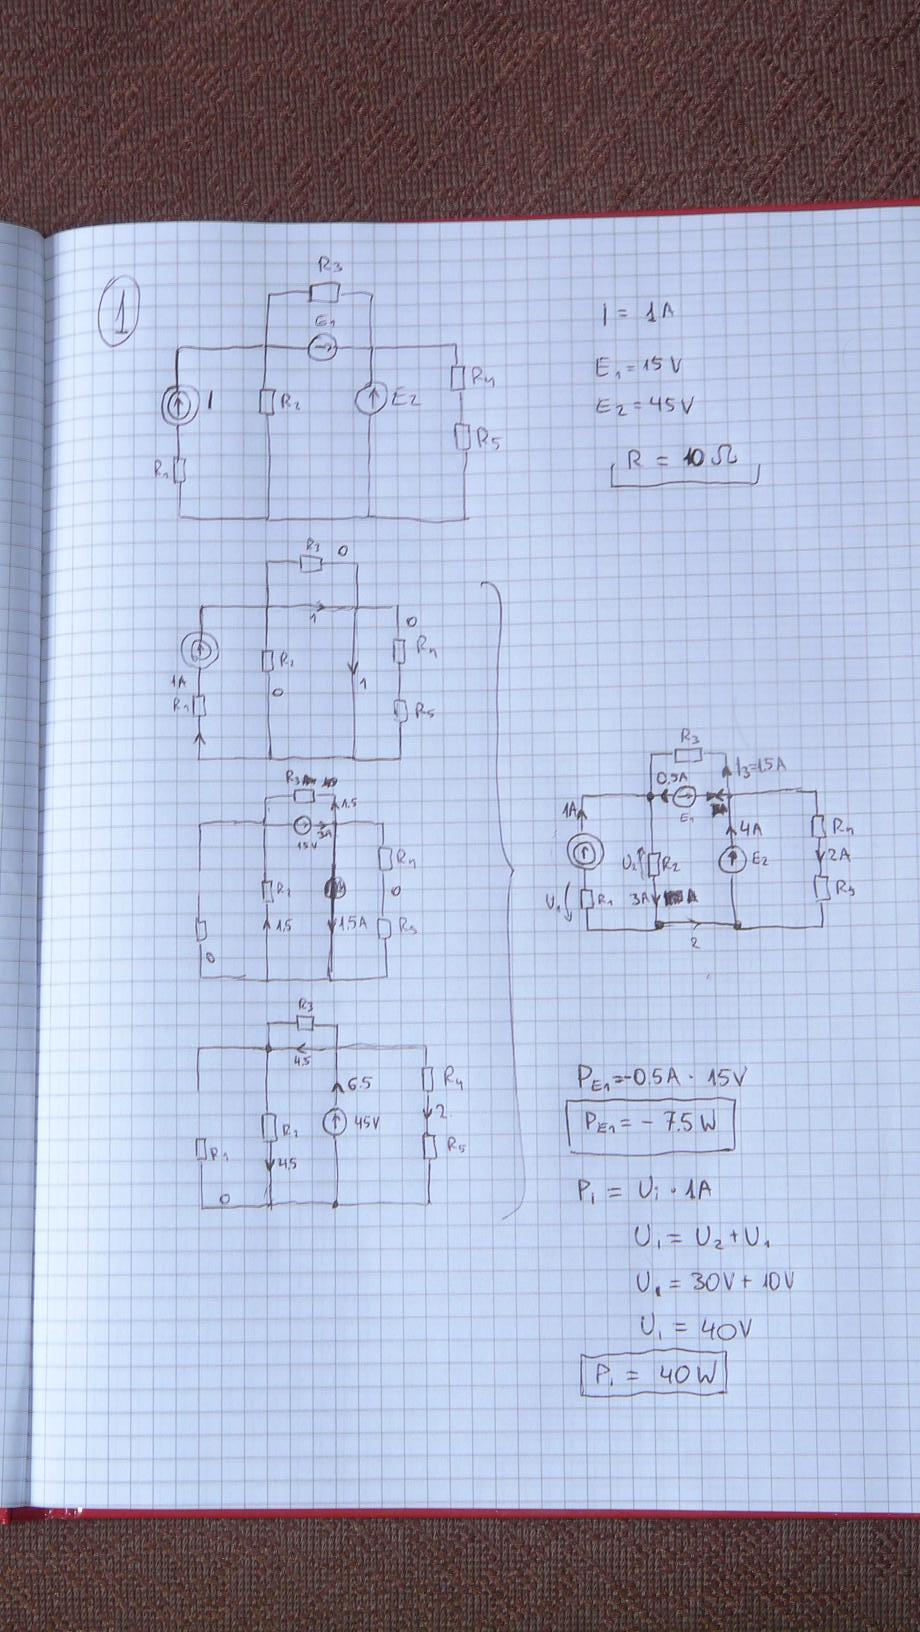 1
R3
E1
I
R2
E2
R4
R5
R1
I = 1A
E1 = 15V
E2 = 45V
R = 10Ω
R3
0
1
0
R4
1A
0
1
R1
R5
R3
1.5
15V
3A
R4
0
1.5
1.5A
R5
0
R3
4.5
6.5
R4
45V
2
R2
R1
4.5
R5
0
R3
I3=1.5A
0.5A
1A
E1
4A
R4
U2
R2
E2
2A
U1
R1
3A
R5
2
PE1=-0.5A · 15V
PE1 = - 7.5W
Pi = Ui · 1A
Ui = U2 + U1
Ui = 30V + 10V
Ui = 40V
Pi = 40W